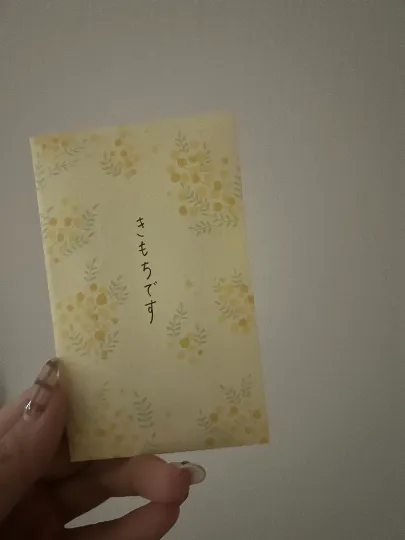 きもちです